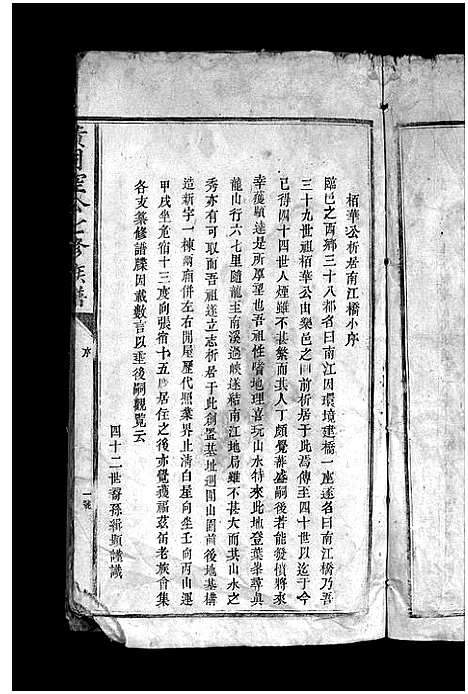 栢華公析居南江橋小序
臨邑之西鄉三十八都名曰南江因環境建橋一座遂名曰南江橋乃吾
三十九世祖栢華公由樂邑之田前析居于此焉傳至四十世以迄于今
已得四十四世人煙雖不甚繁而其人丁頗覺蕃盛嗣後若能發憤將來
幸獲顯達是所厚望也吾祖性嗜地理喜玩山水特來此地登葉峯尋眞
龍山行六七里隨龍至南溪過峽遂結南江地局雖不甚大而其山水之
秀亦有可取而吾祖遂立志析居于此創置基址週圍山園前後地基構
造新宇一棟兩廟併左右閒屋歷代照業界止清白星向坐壬向丙山運
甲戌坐危宿十三度向張宿十五度居住之後亦覺獲福茲領老族會集
各支纂修譜牒因載數言以垂後嗣觀覽云
四十二世裔孫緝顯謹識
公七修族譜
序
一號